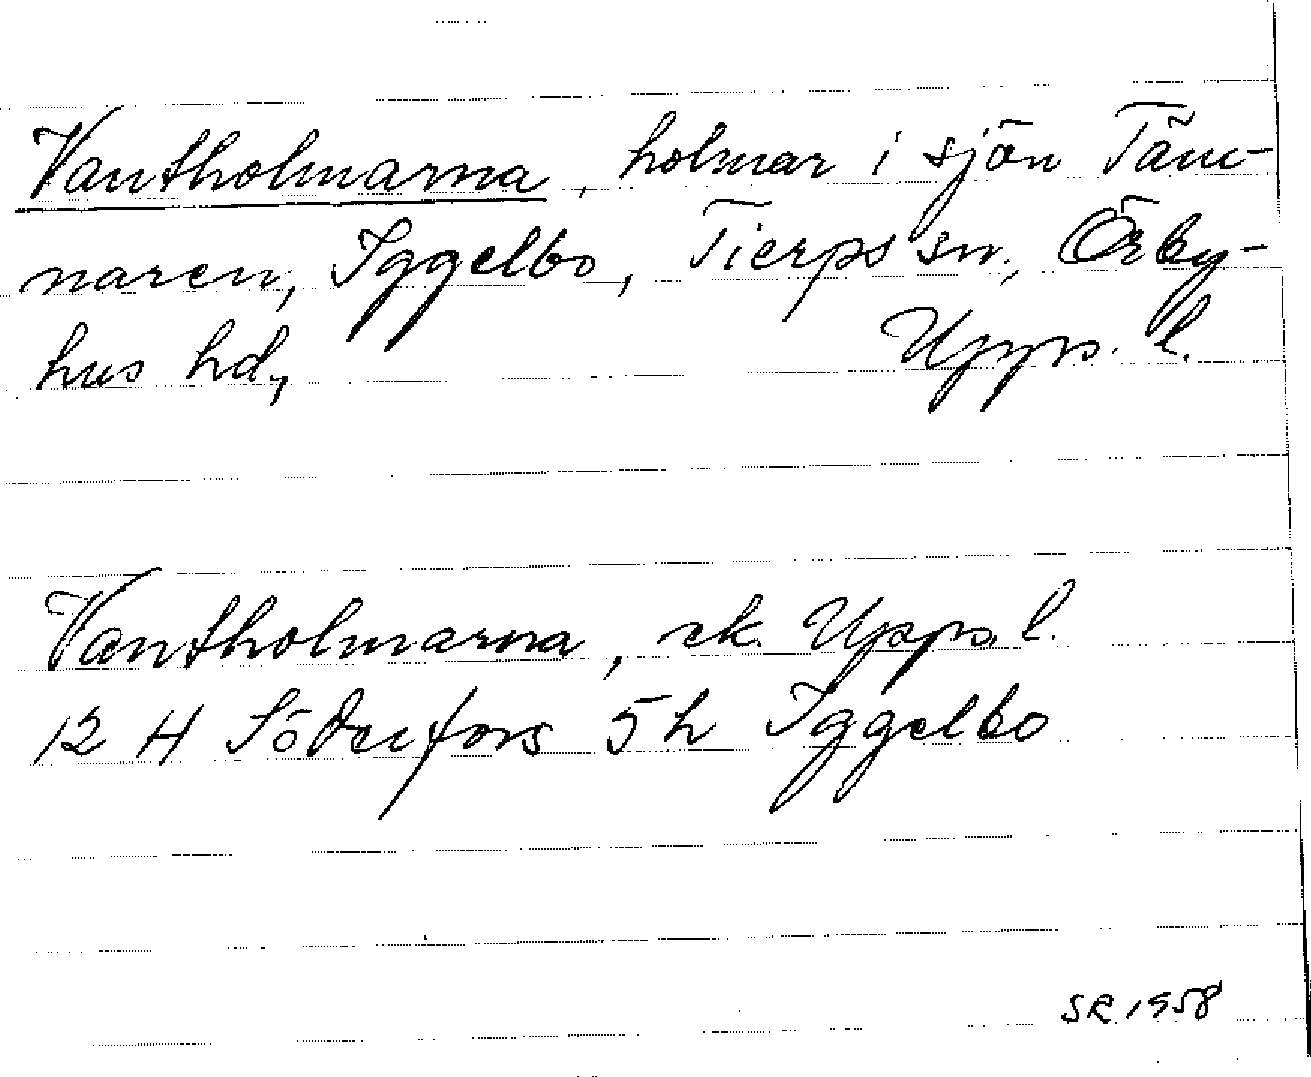 Vantholmarna, holmar i sjön Täm-
naren, Iggelbo, Tierps sn, Örby-
hus hd, Upps. l.
Vantholmarna, ek. Upps. l.
12 H Söderfors 5h Iggelbo
SR 1958